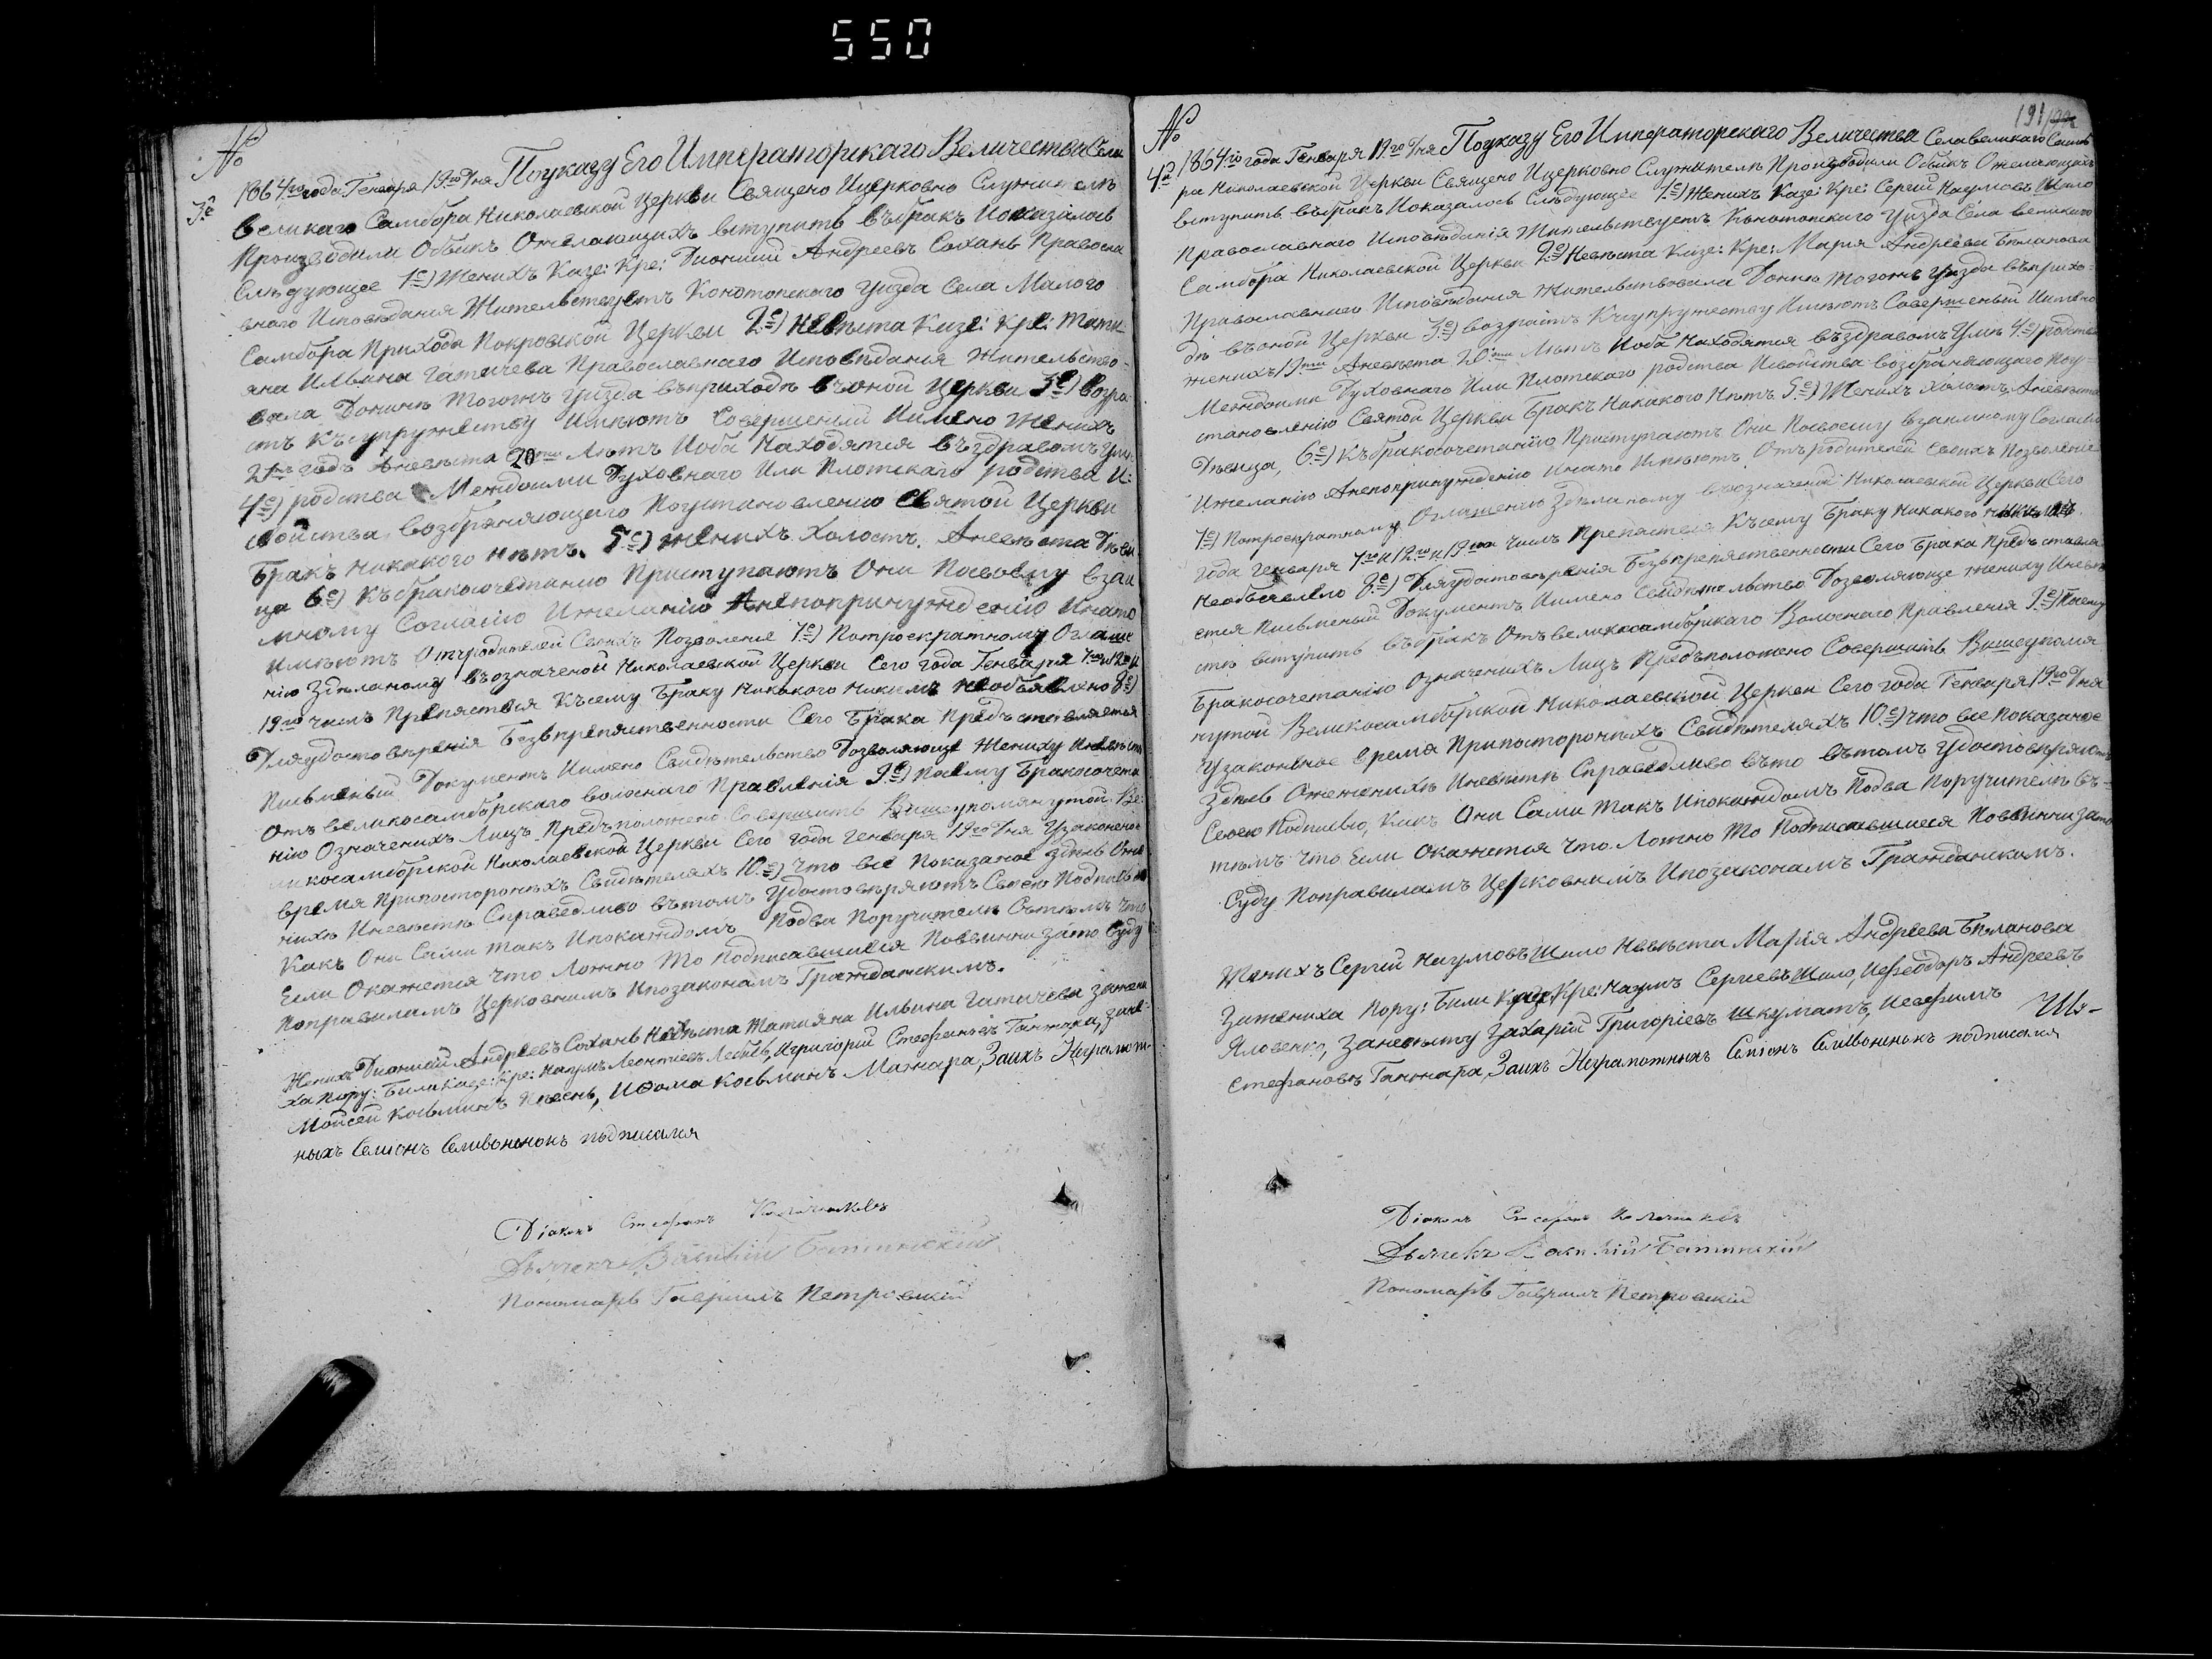 550
№
3е
1864го года Генваря 19го Дня Поуказу Его Императорскаго Величества Села
великаго Самбора Николаевской Церкви Священо Ицерковно Служителѣ
Производили Обыкъ Ожелающихъ вступить въбракъ Ионазалось
Слѣдующее 1е) Женихъ Казе: Кре: Дионисий Андреевъ Сохань Правосла
внаго Исповѣданія Жительствуетъ Конотопского Уизда Села Малого
Самбора Прихода Покровской Церкви 2е) Невѣста Казе: Кре: Тати
яна Ильина Гатичева Православнаго Исповѣданія Жительство-
вала Донинѣ Тогожъ Уизда въприходѣ въоной Церкви 3е) Возра
стъ Ксупружеству Имѣютъ Совершеный Иимено Женихъ
21нъ годъ Аневѣста 20ти Лѣтъ Иоба Находятся въздравомъ Умѣ
4е) родства Междоими Духовнаго Или Плотскаго родства И:
свойства возбраняющего Поустановлению Святой Церкви
Бракъ никакого нѣтъ. 5е) женихъ холостъ. Аневѣста Дѣви
ца 6е) Къбракосочетанию Приступаютъ Они Посвоему взаи
мному Согласию Ижеланію Анепопринуждению Инато
имѣютъ Отъродителей Своихъ Позволеніе 7е) Потроекратному Оглаше
нію Здѣланому въозначеной Николаевской Церкви Сего года Генваря 7го и 12го и
19го чисъ Препяствія Късему Браку Никакого Никимъ необъявлено 8е)
Дляудостовѣренія Безъпрепяственности Сего Брака Предъставляется
Письменый Документъ Иимено Свидѣтельство Дозволяюще Жениху Иневѣст
Отъ великосамборскаго волоснаго Правленія 9е) Поему Бракосочета
нію Означенихъ Лицъ Предъположено Совершить Вишеупомянутой Ве:
ликосамборской Николаевской Церкви Сего года Генваря 19го Дня Узаконеное
время Припостороннихъ Свидѣтеляхъ 10е) что все Показаное здѣсь Оже
нихѣ Иневѣстѣ Справедливо вътомъ Удостовѣряютъ Своею Подписью
Какъ Они Сами такъ Ипокаждомъ Подва Поручителѣ Сътѣмъ Что
Если Окажется Что Ложно То Подписавшиеся Повинни зато Суду
Поправиламъ Церковнимъ Ипозаконамъ Гражданскимъ.
Женихъ Дионисий Андреевъ Сохань Невѣста Татияна Ильина Гатичева зажени
ха Пору: Били Казе: Кре: Наумъ Леонтиевъ Лебедь, Игригорий Стефановъ Ганжара, зане-
Мойсей Козьминъ Пѣсень, Иѳома Козьминъ Мажара, Заихъ Неграмот-
ныхъ Семіонъ Селивоненокъ подписался
Діаконъ Стефанъ
Дьячекъ Василий Батинский
Пономарь Гавриилъ Петровский
191
№
4й
1864го года Генваря 19го Дня Поуказу Его Императорскаго Величества Села великаго Самбо
ра Николаевской Церкви Священо Ицерковно Служителѣ Производили Обыкъ Ожелающихъ
вступить въбракъ Ионазалось Слѣдующее 1е) Женихъ Казе: Кре: Сергий Наумовъ Шило
Православнаго Исповѣданія Жительствуетъ Конотопского Уизда Села великаго
Самбора Николаевской Церкви 2е) Невѣста Казе: Кре: Марія Андреева Биланова
Православнаго Исповѣдания жительствовала Донинѣ Тогожъ Уизда въприхо-
дѣ въоной Церкви 3е) возрастъ Ксупружеству Имѣютъ Совершеный Иимено
женихъ 19ти Аневѣста 20ти Лѣтъ Иоба Находятся въздравомъ Умѣ 4е) родства
Междоими Духовнаго Или Плотскаго родства Исвойства возбраняющаго Поу-
становлению Святой Церкви Бракъ Никакого Нѣтъ 5е) Женихъ холостъ, Аневѣста
Дѣвица, 6е) Къбракосочетанію Приступаютъ Они Посвоему взаимному Согласи
Ижеланію Анепопринужденію Инато Имѣютъ Отъродителей Своихъ Позволеніе
7е) Потроекратному Оглашенію Здѣланому въозначеной Николаевской Церкви Сего
года Генваря 7го и 12го и 19гоа числъ Препяствія Късему Браку Никакого
Необъявлено 8е) Дляудостовѣренія Безъпрепяственности Сего Брака Предъставля
ется Письменый Документъ Иимено Свидѣтельство Дозволяюще жениху Иневѣ
стѣ вступить въбракъ Отъ великосамборскаго Волоснаго Правленія 9е) Поему
Бракосочетанію Означенихъ Лицъ Предъположено Совершить Вишеупомя
нутой Великосамборской Николаевской Церкви Сего года Генваря 19го Дня
Узаконеное время Припостороннихъ Свидѣтеляхъ 10е) что все показаное
Здѣсь Оженихѣ Иневѣстѣ Справедливо въто вътомъ Удостовѣряютъ
Своею Подписью, Какъ Они Сами такъ Ипокаждомъ Подва Поручителѣ Съ-
тѣмъ что Если Окажется Что Ложно То Подписавшиеся Повинни зато
Суду Поправиламъ Церковнимъ Ипозаконамъ Гражданскимъ.
Женихъ Сергий Наумовъ Шило Невѣста Марія Андреева Биланова
Зажениха Пору: Били Казе: Кре: Наумъ Сергиевъ Шило, Иѳеодоръ Андреевъ
Яловенко, Заневѣсту Захарий Григоріевъ Шкуматъ, Иевфимъ
Стефановъ Ганжара, Заихъ Неграмотныхъ Семіонъ Селивоненокъ подписался
Діаконъ Стефанъ
Дьячекъ Василий Батинский
Пономарь Гавриилъ Петровский